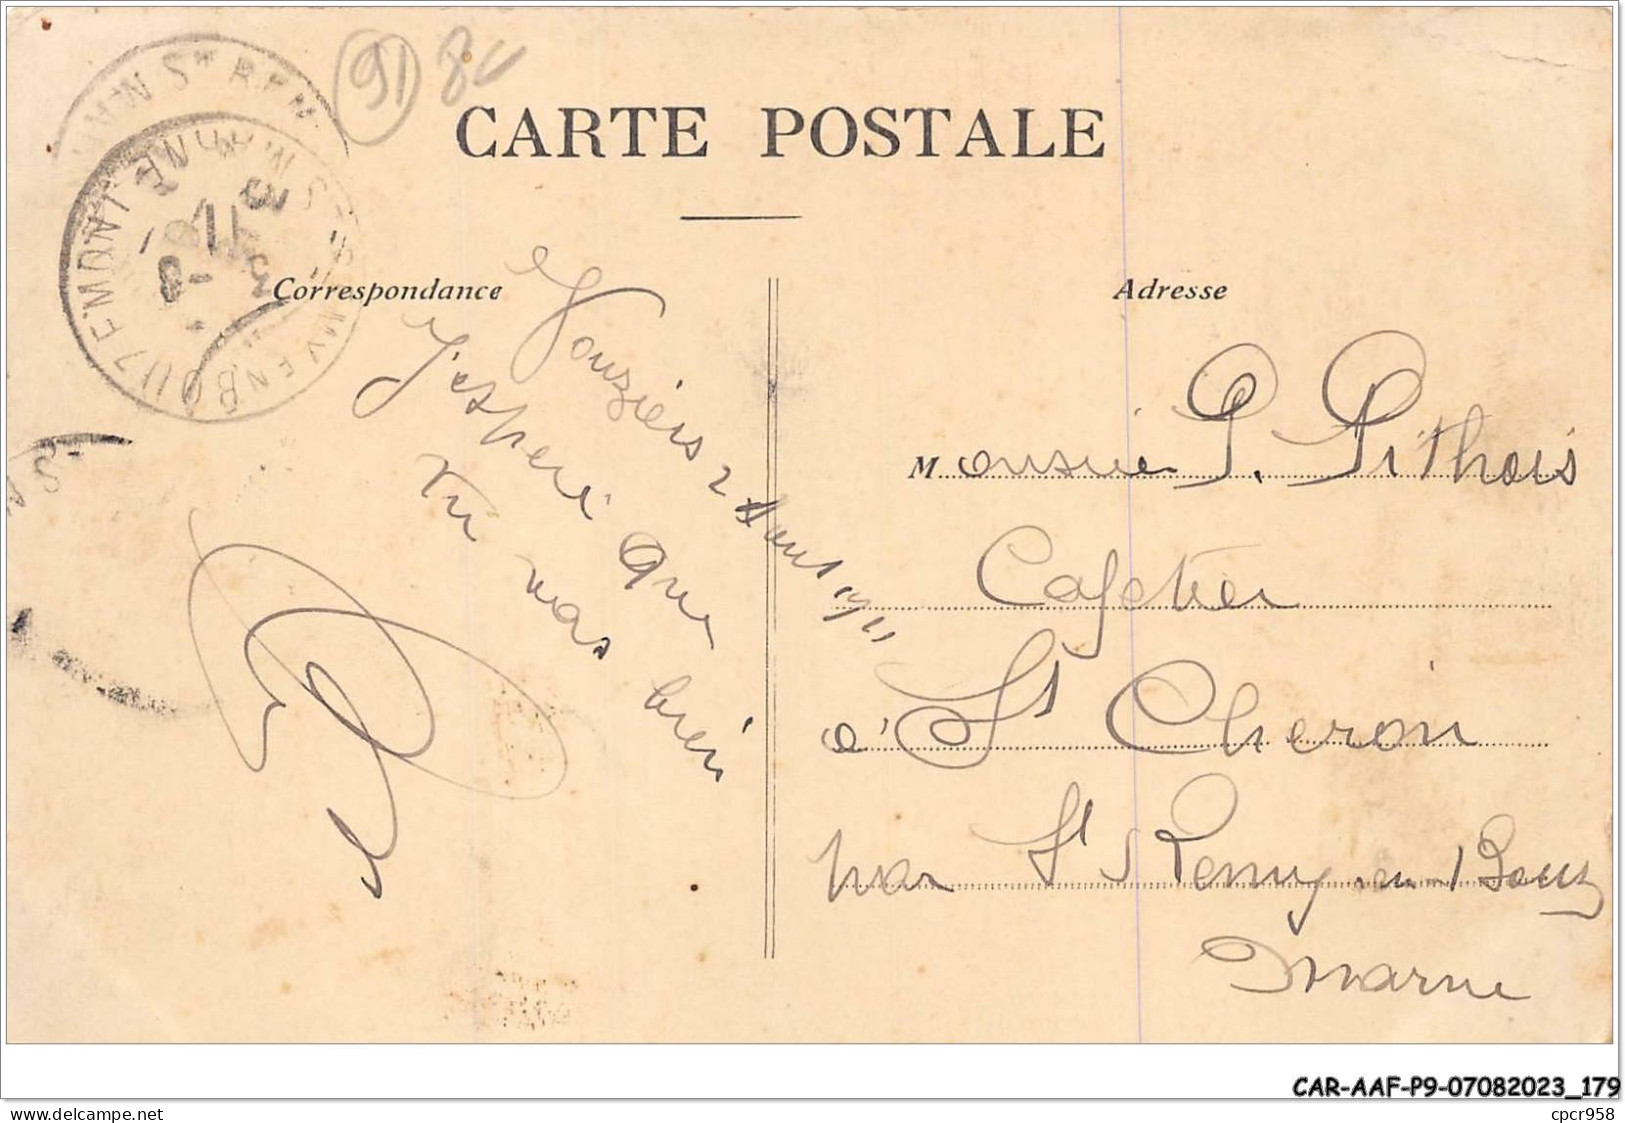 CARTE POSTALE
Correspondance
Adresse
Vouziers 2 Aout 1911
J'espère que
tu vas bien
Monsieur P. Pithois
Cafetier
à St Cheron
par St Remy en Bouz
Marne
CAR-AAF-P9-07082023_179
delcampe.net
cpcr958